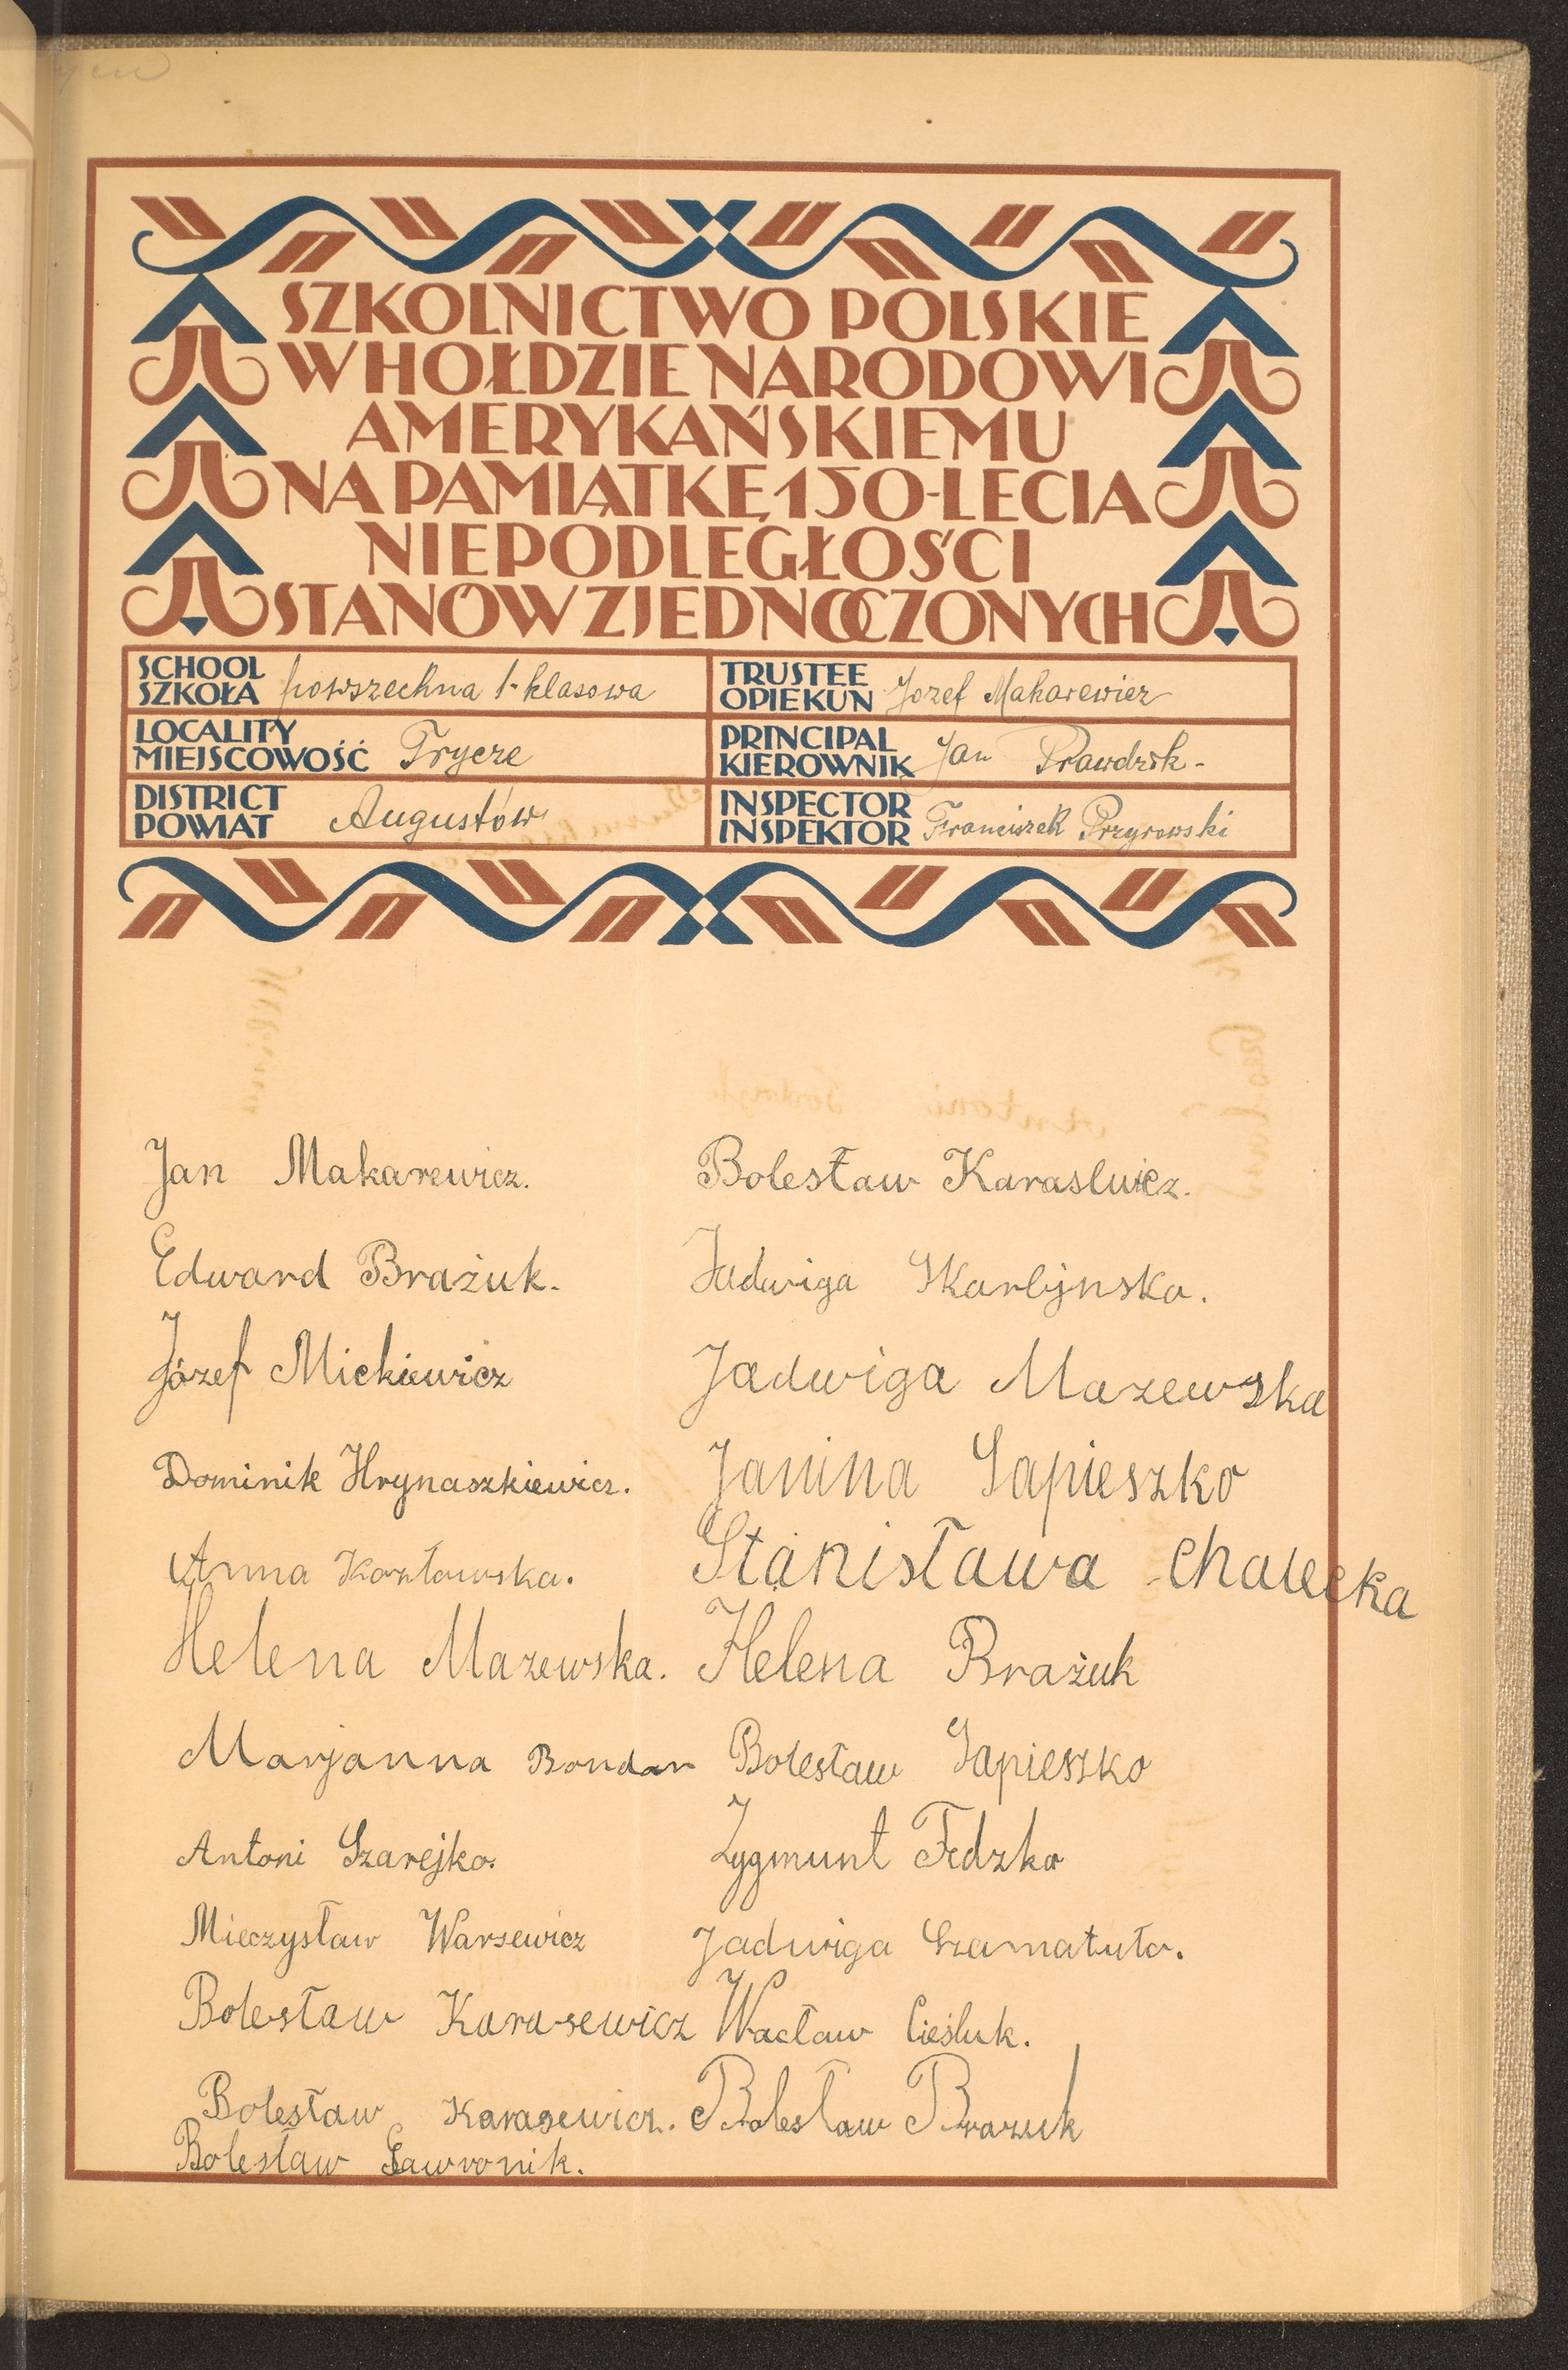 SZKOLNICTWO POLSKIE
W HOŁDZIE NARODOWI
AMERYKAŃSKIEMU
NA PAMIĄTKĘ 150-LECIA
NIEPODLEGŁOŚCI
STANÓW ZJEDNOCZONYCH
SCHOOL
SZKOŁA powszechna 1-klasowa
TRUSTEE
OPIEKUN Jozef Makarewicz
LOCALITY
MIEJSCOWOŚĆ Trycze
PRINCIPAL
KIEROWNIK Jan Prawdzik-
DISTRICT
POWIAT Augustów
INSPECTOR
INSPEKTOR Franciszek Przyrowski
Jan Makarewicz.
Edward Brażuk.
Józef Mickiewicz
Dominik Hrynaszkiewicz.
Anna Kozłowska.
Helena Mazewska.
Marjanna Bondar
Antoni Szarejko.
Mieczysław Warsewicz
Bolesław Karasewicz
Bolesław Karasewicz.
Bolesław Gawronik.
Bolesław Karaslwicz.
Jadwiga Skarbjnska.
Jadwiga Mazewska
Janina Sapieszko
Stanisława Chalecka
Helena Brażuk
Bolesław Sapieszko
Zygmunt Fedzko
Jadwiga Szamatuła.
Wacław Cieśluk.
Bolesław Brazuk